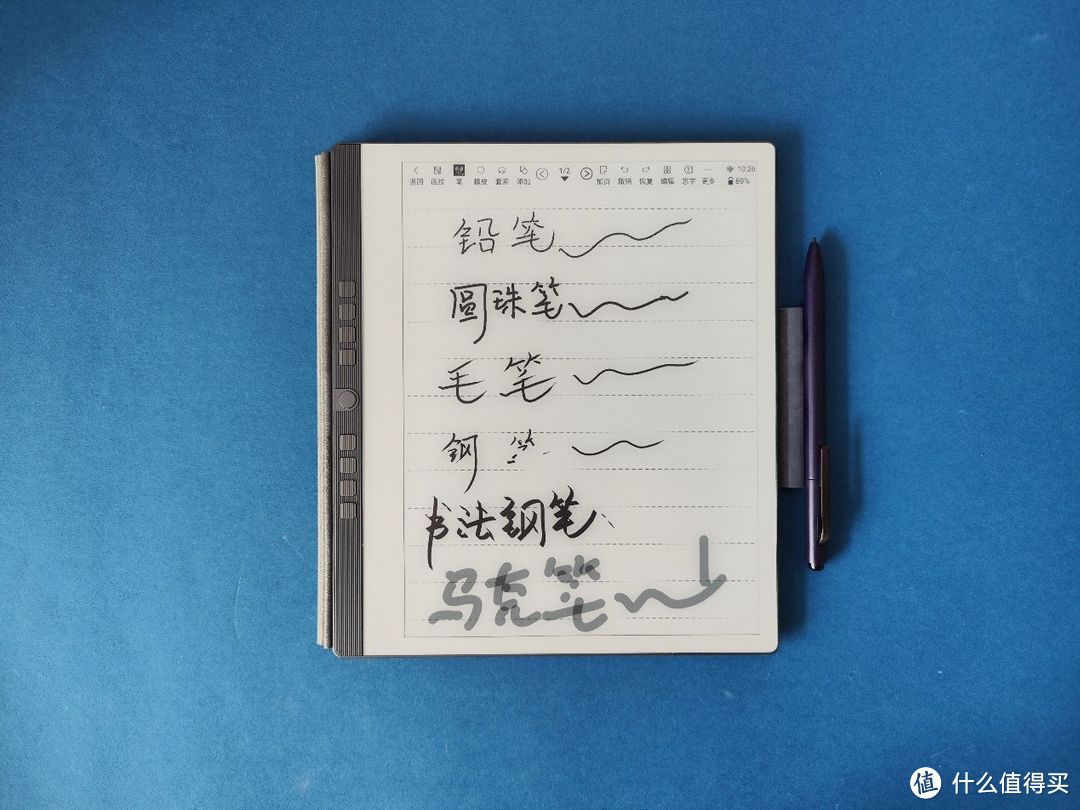 返回 底纹 笔 橡皮 套索 添加 1/2 加页 撤销 恢复 编辑 忘字 更多 10:26 89%
铅笔
圆珠笔
毛笔
钢笔
书法钢笔
马克笔
值 什么值得买